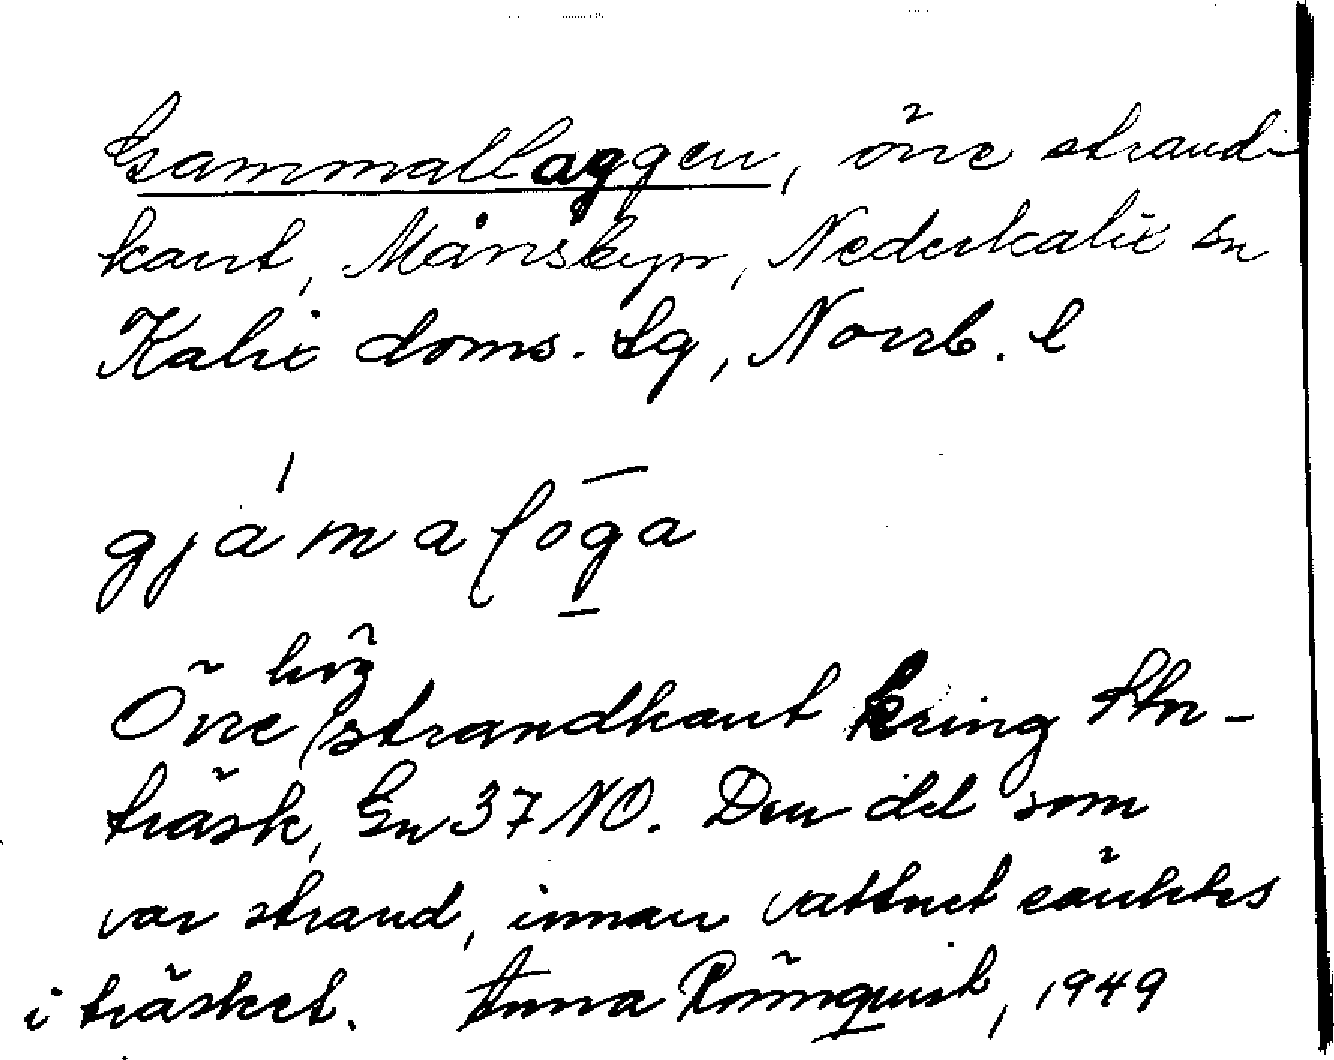 Gammallaggen, övre strand-
kant, Månsbyn, Nederkalix sn
Kalix doms. lg, Norrb. l
gjámalōga
Övre hög strandkant kring Stor-
träsk, Gn 37 NO. Den del som
var strand, innan vattnet sänktes
i träsket. Anna Rönnquist, 1949